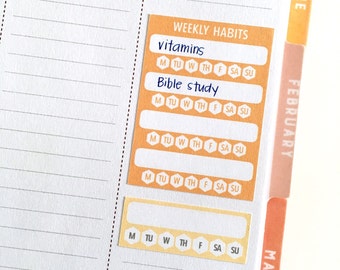 WEEKLY HABITS
vitamins
M TU W TH F SA SU
Bible study
M TU W TH F SA SU
M TU W TH F SA SU
M TU W TH F SA SU
M TU W TH F SA SU
FEBRUARY